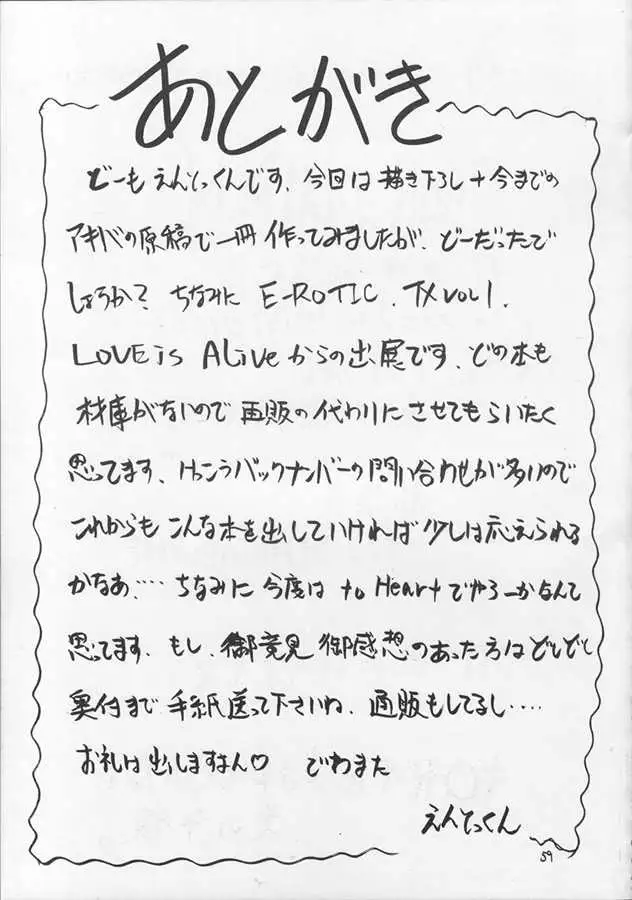 あとがき
どーも えんとっくんです、今回は描き下ろし+今までの
アキバの原稿で一冊作ってみましたが、どーだったで
しょうか? ちなみに E-ROTIC、TX VOL1、
LOVE is Aliveからの出展です、どの本も
在庫がないので再販の代わりにさせてもらいたく
思ってます、けっこうバックナンバーの問い合わせが多いので
これからもこんな本を出していければ少しは応えられる
かなあ‥‥ ちなみに今度は to Heartでやろーかなんて
思ってます、もし、御意見御感想のあった方はどしどし
奥付まで手紙送って下さいね、通販もしてるし‥‥
お礼は出しますよん♡ でわまた
えんとっくん
59